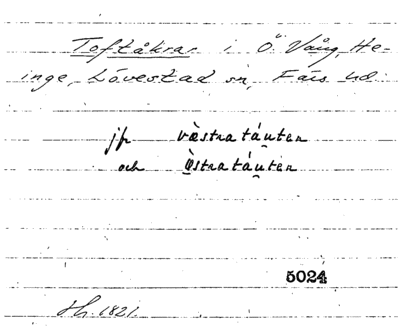 Toftåkrar i Ö. Vång, He-
inge, Lövestad sn, Färs hd.
jfr västratáuten
och östratáuten
5024
Hh. 1821.